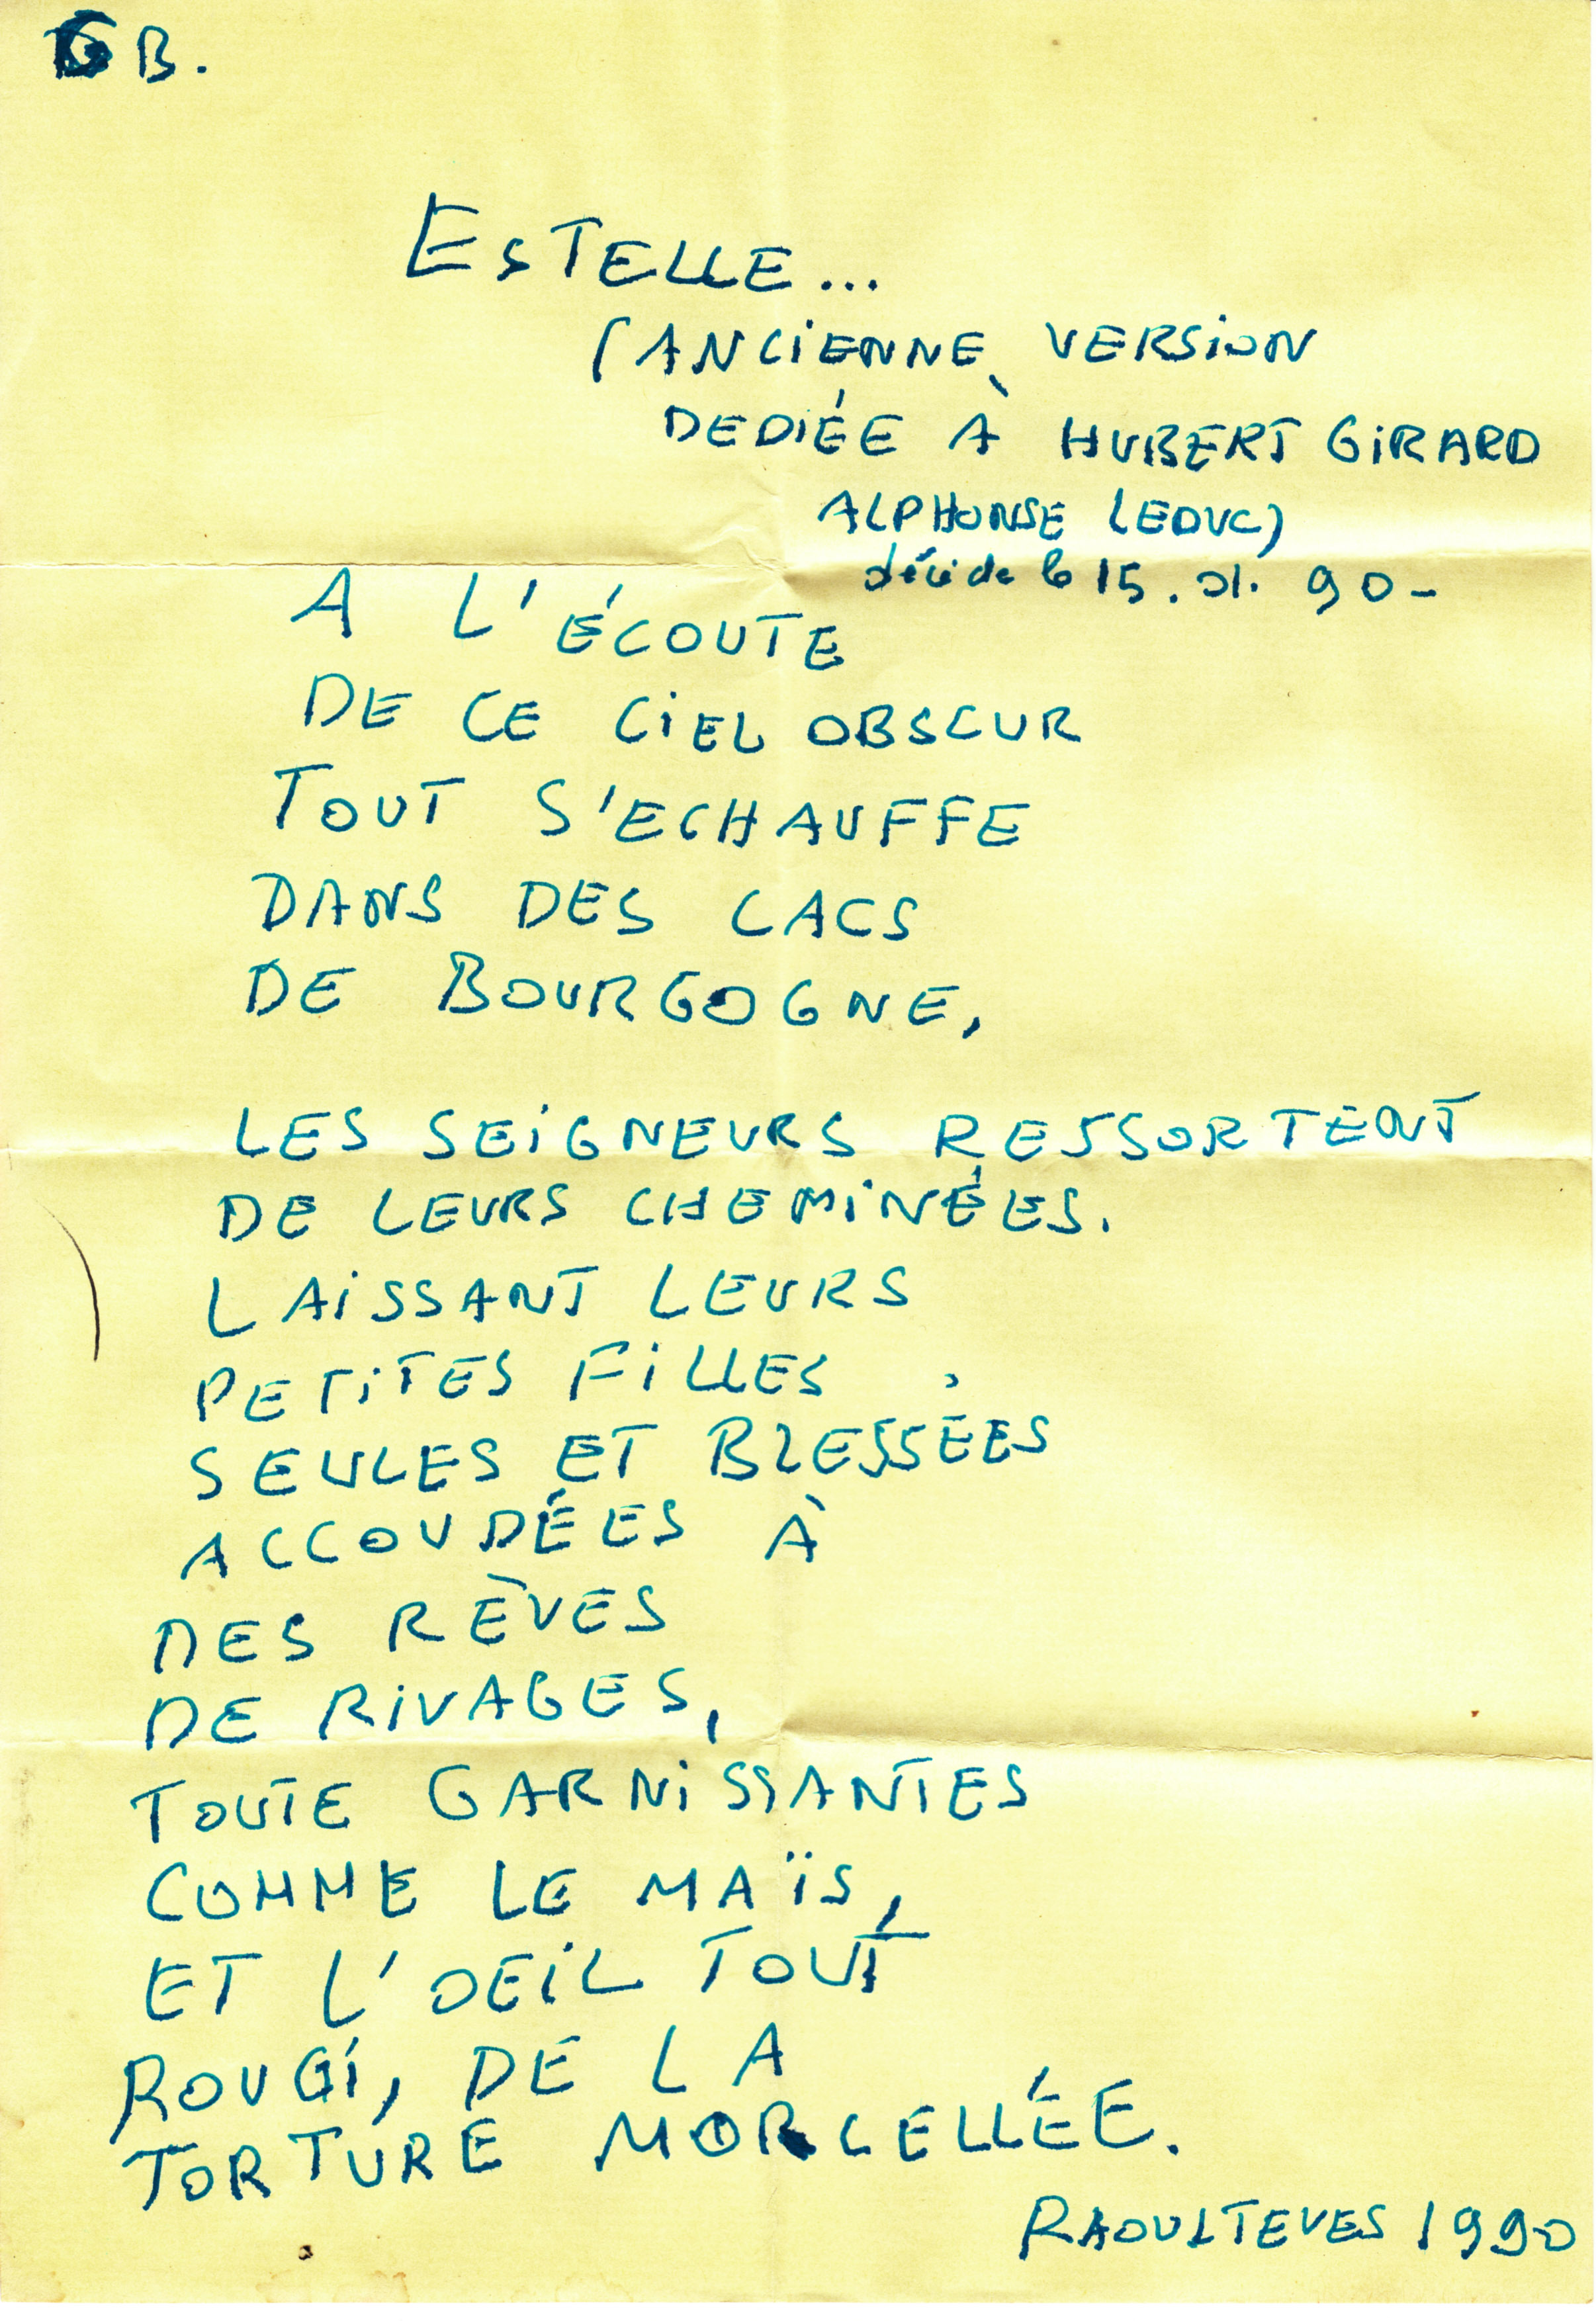 GB.
ESTELLE...
(ANCIENNE VERSION
DEDIÉE À HUBERT GIRARD
ALPHONSE LEDUC)
décidé le 15.01.90-
A L'ÉCOUTE
DE CE CIEL OBSCUR
TOUT S'ECHAUFFE
DANS DES LACS
DE BOURGOGNE,
LES SEIGNEURS RESSORTENT
DE LEURS CHEMINÉES.
LAISSANT LEURS
PETITES FILLES
SEULES ET BLESSÉES
ACCOUDÉES À
DES RÈVES
DE RIVAGES,
TOUTE GARNISSANTES
COMME LE MAÏS,
ET L'OEIL TOUT
ROUGI, DE LA
TORTURE MORCELLÉE.
RAOULTEVES 1990